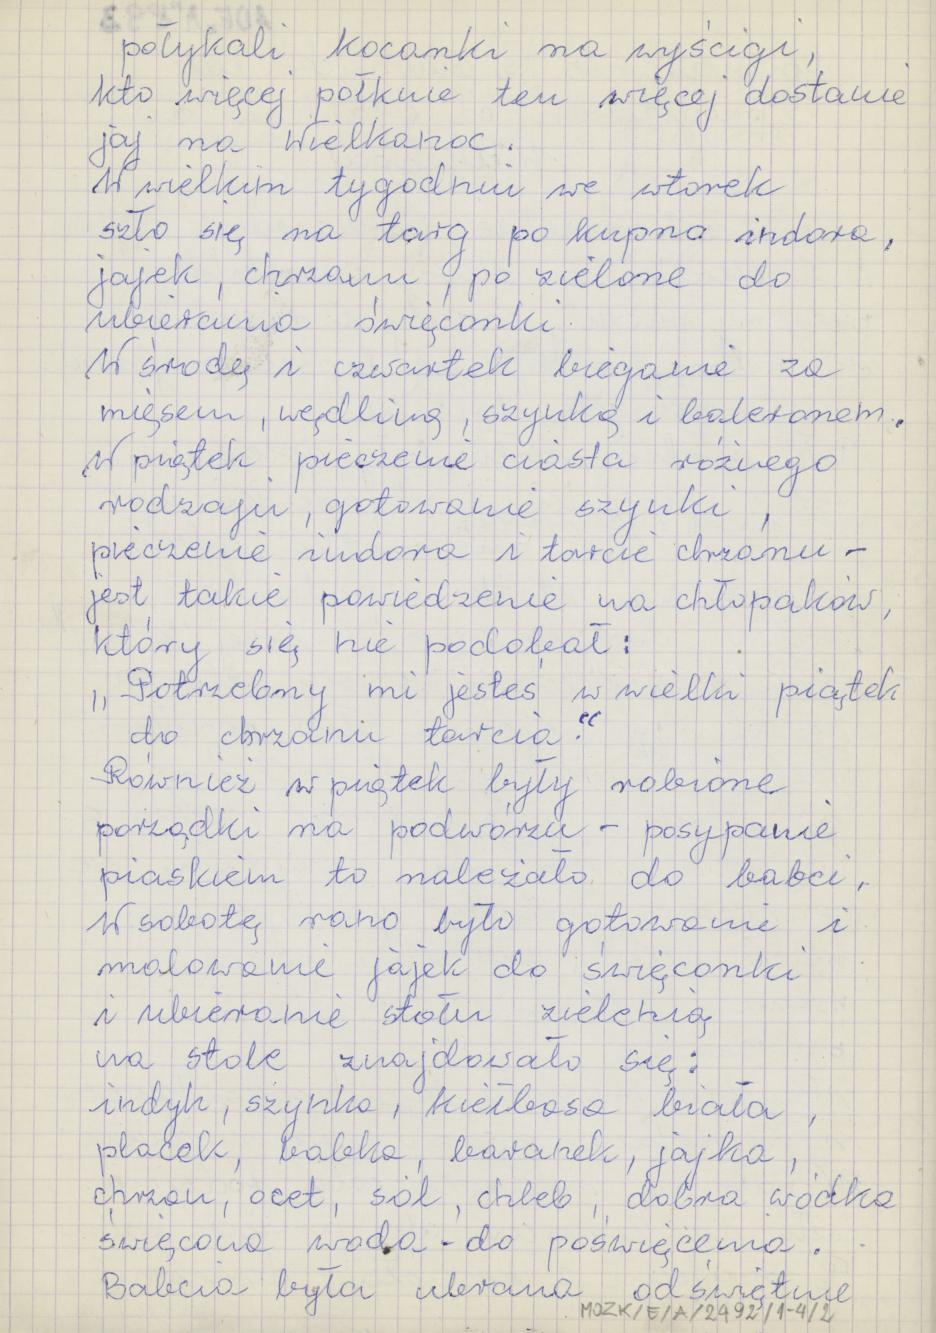 połykali kocanki na wyścigi,
kto więcej połknie ten więcej dostanie
jaj na Wielkanoc.
W wielkim tygodniu we wtorek
szło się na targ po kupno indora,
jajek, chrzanu, po zielone do
ubierania święconki.
W środę i czwartek bieganie za
mięsem, wędliną, szynką i baleronem.
W piątek pieczenie ciasta rożnego
rodzaju, gotowanie szynki,
pieczenie indora i tarcie chrzanu -
jest takie powiedzenie na chłopaków,
który się nie podobał:
„Potrzebny mi jesteś w wielki piątek
do chrzanu tarcia."
Również w piątek były robione
porządki na podwórzu - posypanie
piaskiem to należało do babci.
W sobotę rano było gotowanie i
malowanie jajek do święconki
i ubieranie stołu zielenią
na stole znajdowało się:
indyk, szynka, kiełbasa biała,
placek, babka, baranek, jajka,
chrzan, ocet, sól, chleb, dobra wódka
święcona woda - do poświęcenia.
Babcia była ubrana odświętnie
MOZK/E/A/2492/1-4/2